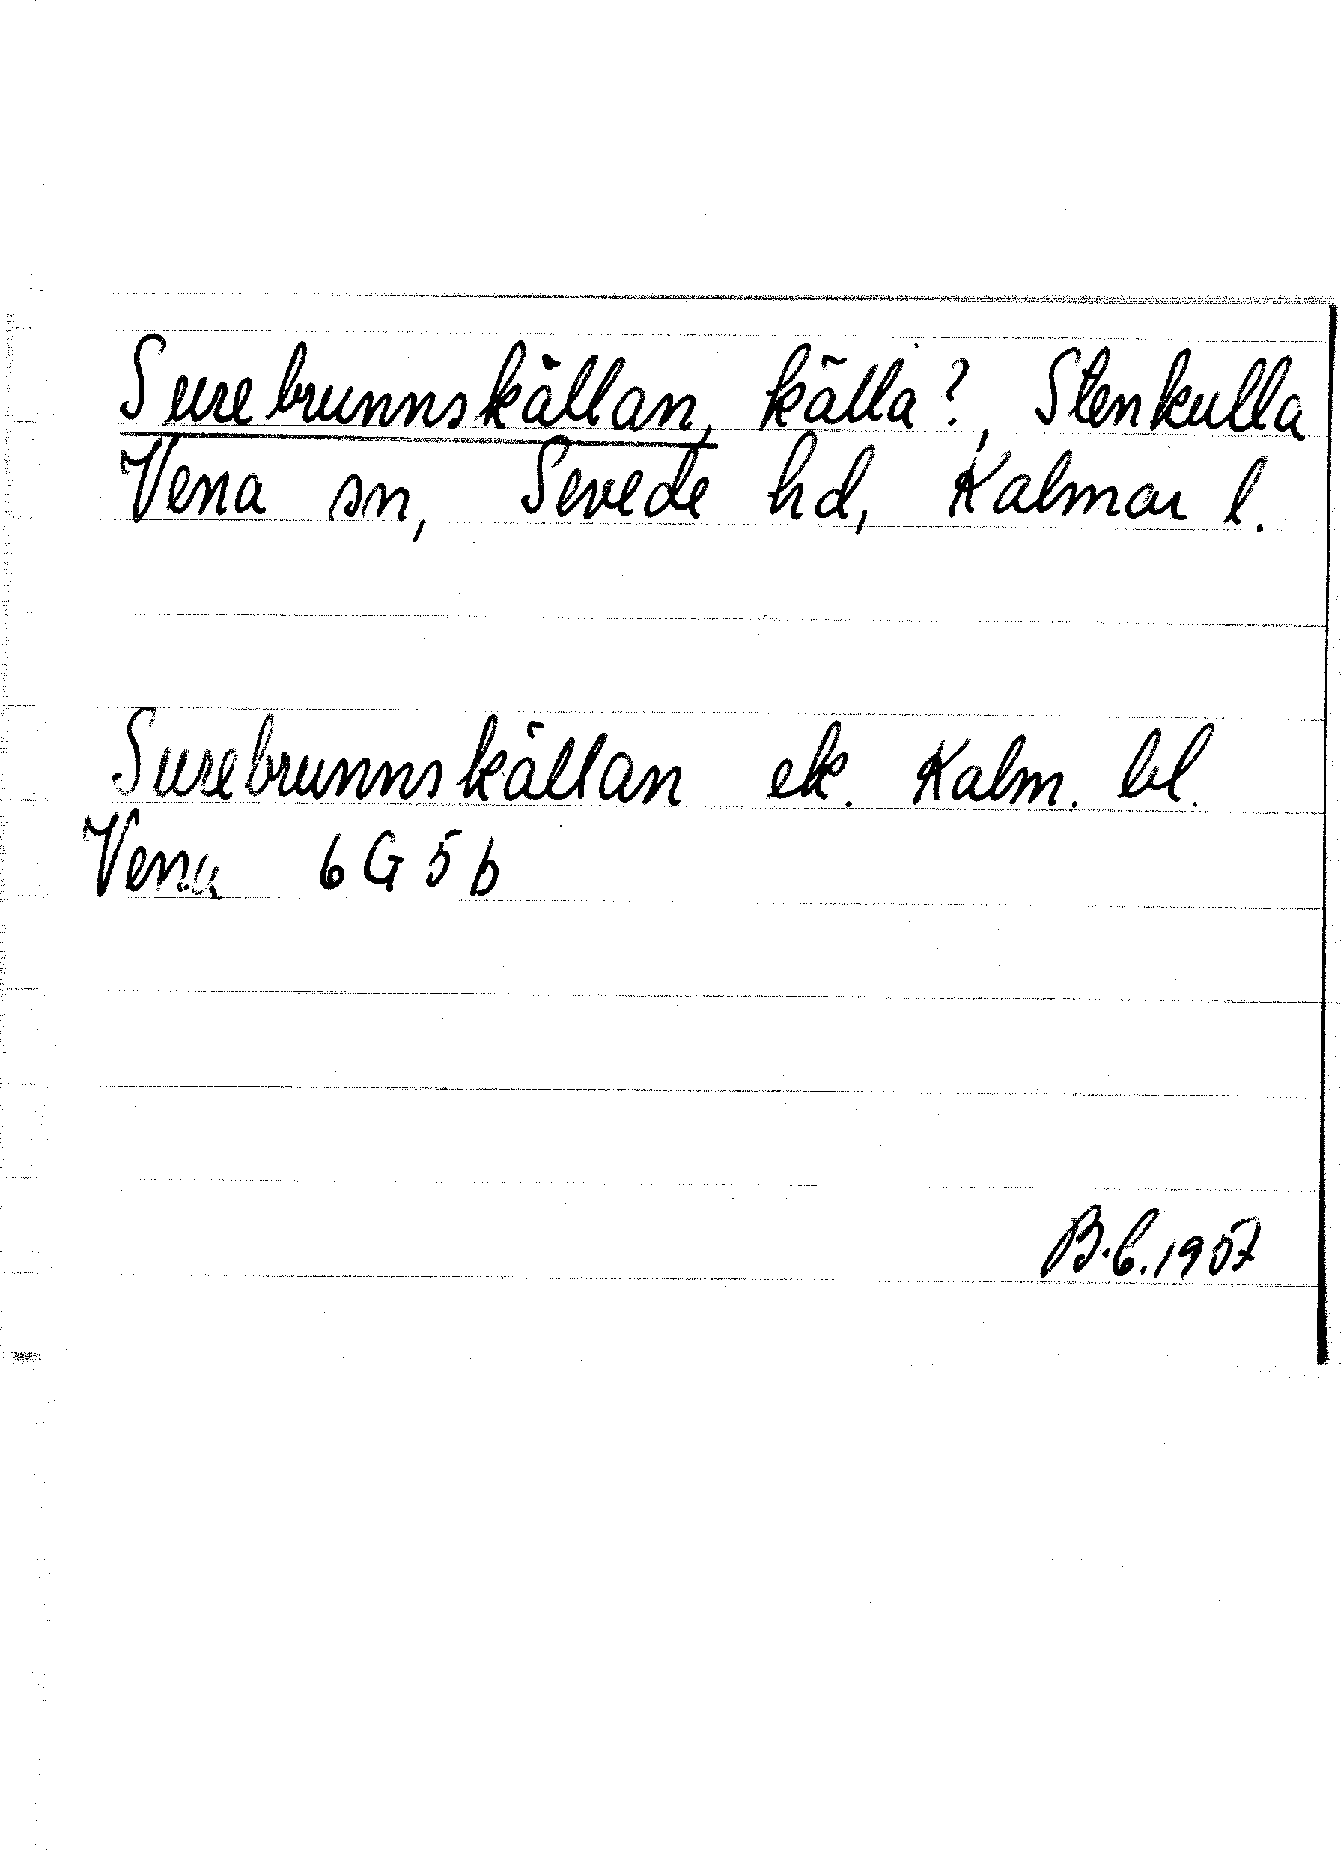 Surebrunnskällan, källa?, Stenkulla
Vena sn, Sevede hd, Kalmar l.
Surebrunnskällan ek. Kalm. bl.
Vena 6G5b
B.G.1957